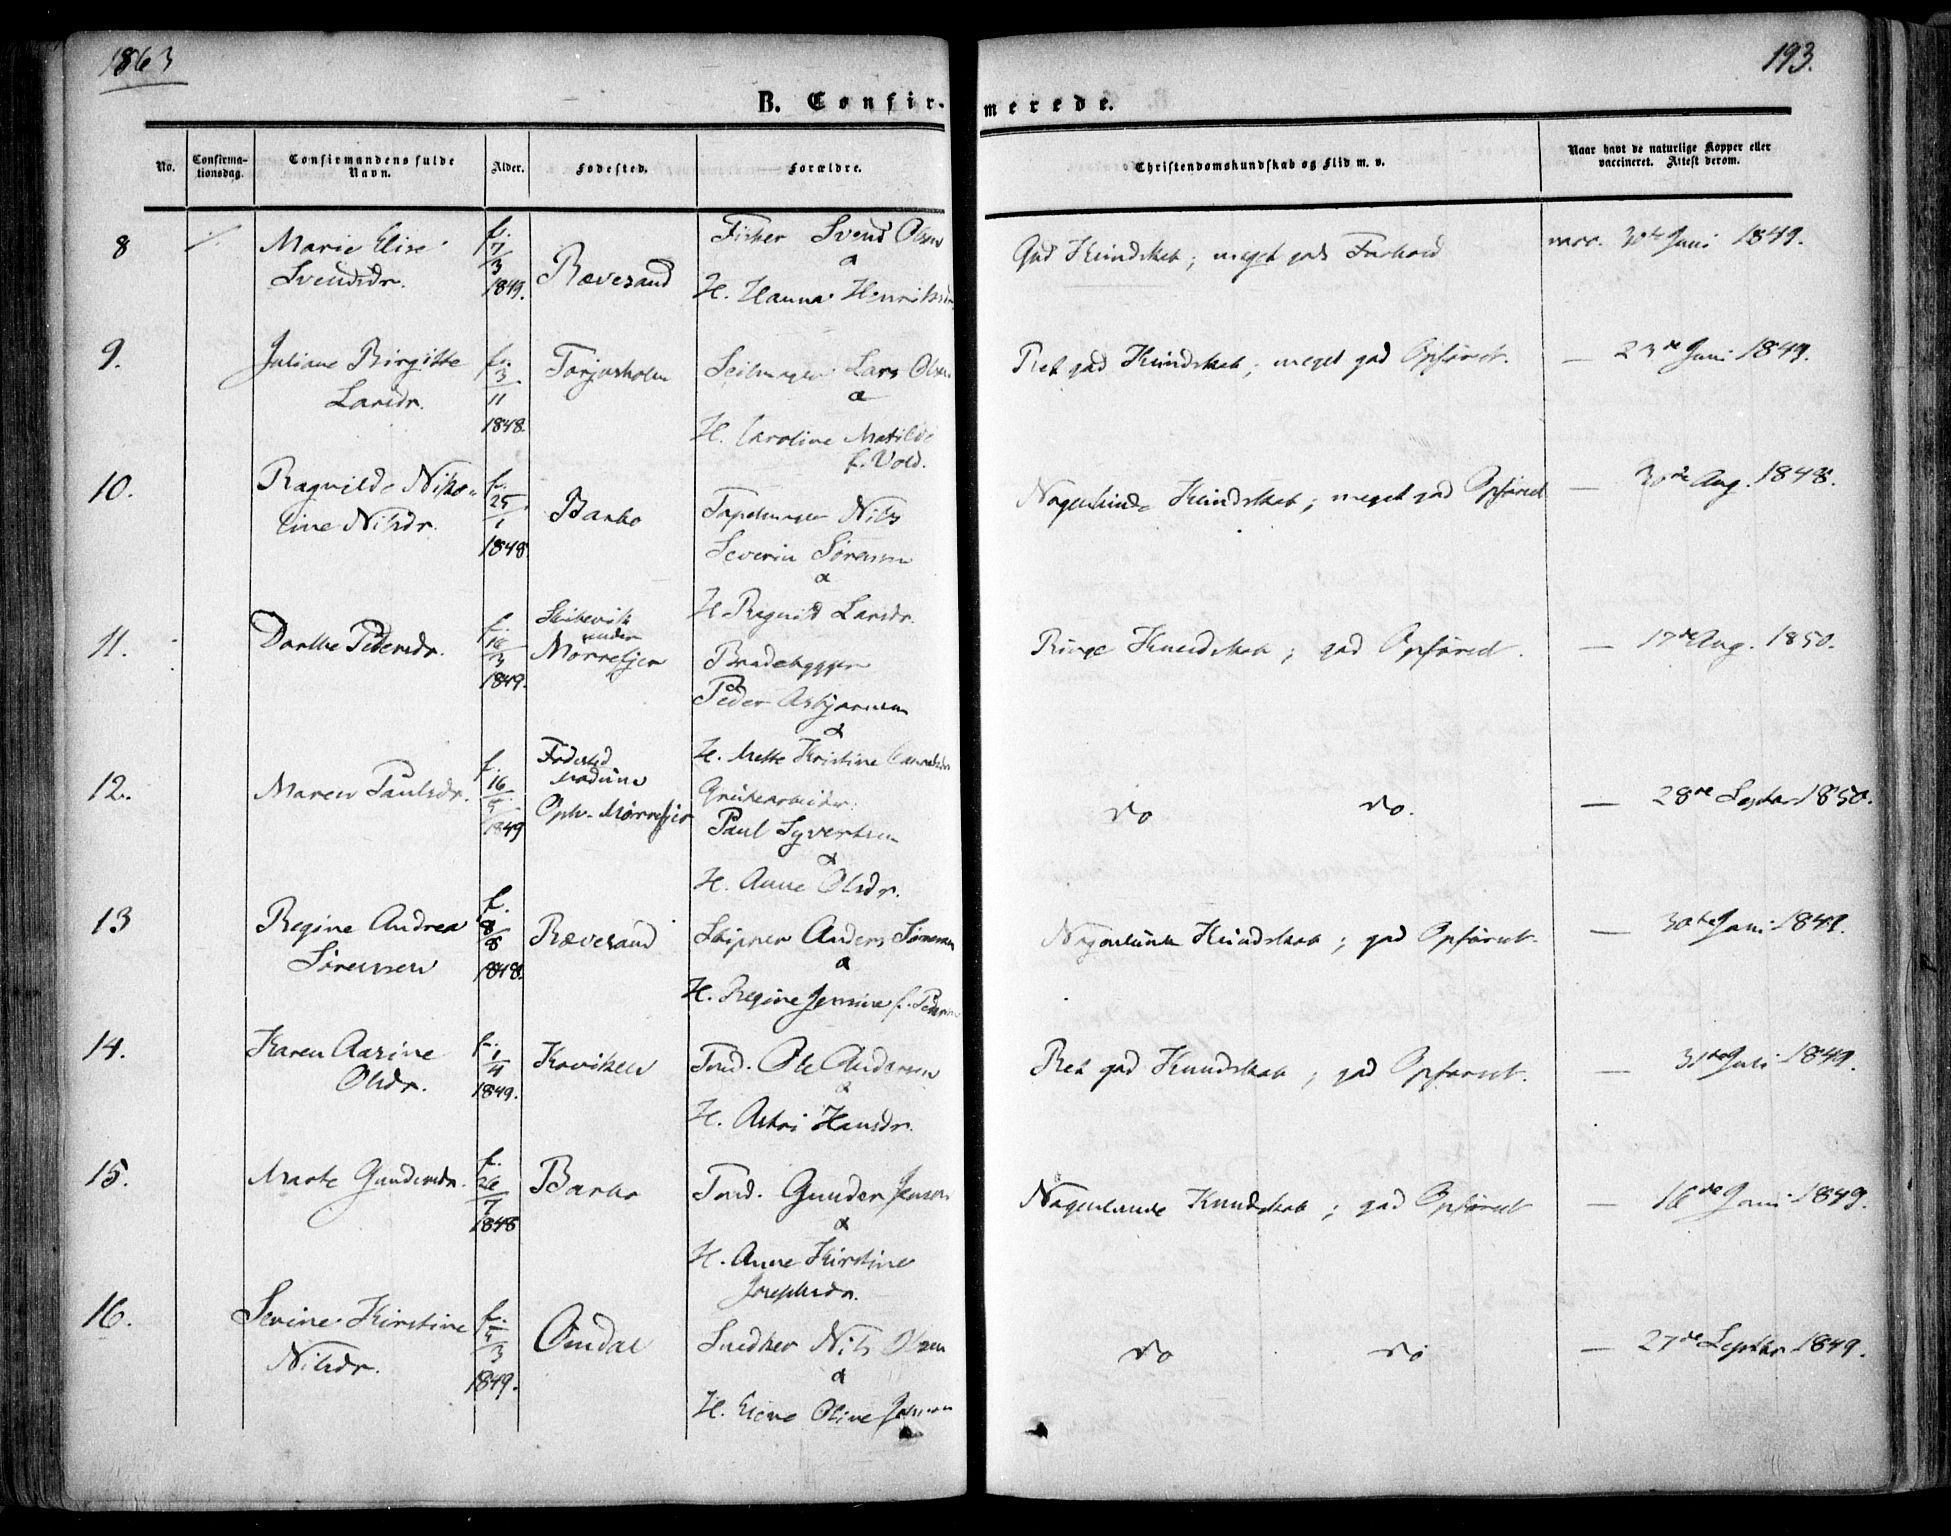 1863
193.
B. Confirmerede.
No.
Confirmationsdag.
Confirmandens fulde Navn.
Alder.
Fødested.
Forældre.
Christendomskundskab og Flid m. v.
Naar havt de naturlige Kopper eller vaccineret. Attest derom.
8
Marie Elise
Svendsdr.
f. 7/3 1849.
Rævesand
Fisker Svend Olsen
&
H. Hanna Henriksdr
God Kundskab; meget god Forhold
vacc. 30te Juni 1849.
9.
Juliane Birgitte
Larsdr.
f. 3/11 1848.
Torjusholm
Seilmager Lars Olsen
&
H. Caroline Matilde
f. Vold.
Ret god Kundskab; meget god Opførsel.
— 23de Juni 1849.
10.
Ragnilde Niko-
line Nilsdr.
f. 25/1 1848.
Barbo
Nils
Severin Sørensen
&
H. Ragnild Larsdr.
Nogenlunde Kundskab; meget god Opførsel
— 30te Aug. 1848.
11.
Dorthe Pedersdr.
f. 10/3 1849.
under
Mørrefjær
Baadebygger
Peder Asbjørnsen
&
H. Mette Kristine
Ringe Kundskab; god Opførsel.
— 17de Aug. 1850.
12.
Maren Paulsdr.
f. 16/5 1849
Fødested
Oph. Mørrefjær
Grubearbeider
Paul Syvertsen
&
H. Anne Olsdr.
do do.
— 28de Septbr 1850.
13
Regine Andrea
Sørensen
f. 8/8 1848.
Rævesand
Skipper Anders Sørensen
&
H. Regine Jensine f. Pedersen
Nogenlunde Kundskab; god Opførsel.
— 30te Juni 1849.
14.
Karen Aasine
Olsdr.
f. 1/4 1849.
Kaviken
Tmd. Ole Andersen
&
H. Astri Hansdr.
Ret god Kundskab; god Opførsel.
— 31te Juli 1849.
15.
Marte Gundersdr.
f. 26/7 1848
Barbo
Tmd. Gunder Jensen
&
H. Anne Kirstine
Josephsdr.
Nogenlunde Kundskab; god Opførsel
— 16de Juni 1849.
16.
Serine Kirstine
Nilsdr.
f. 5/3 1849.
Omdal
Snedker Nils Olsen
&
H. Olive
do do
— 27de Septbr 1849.